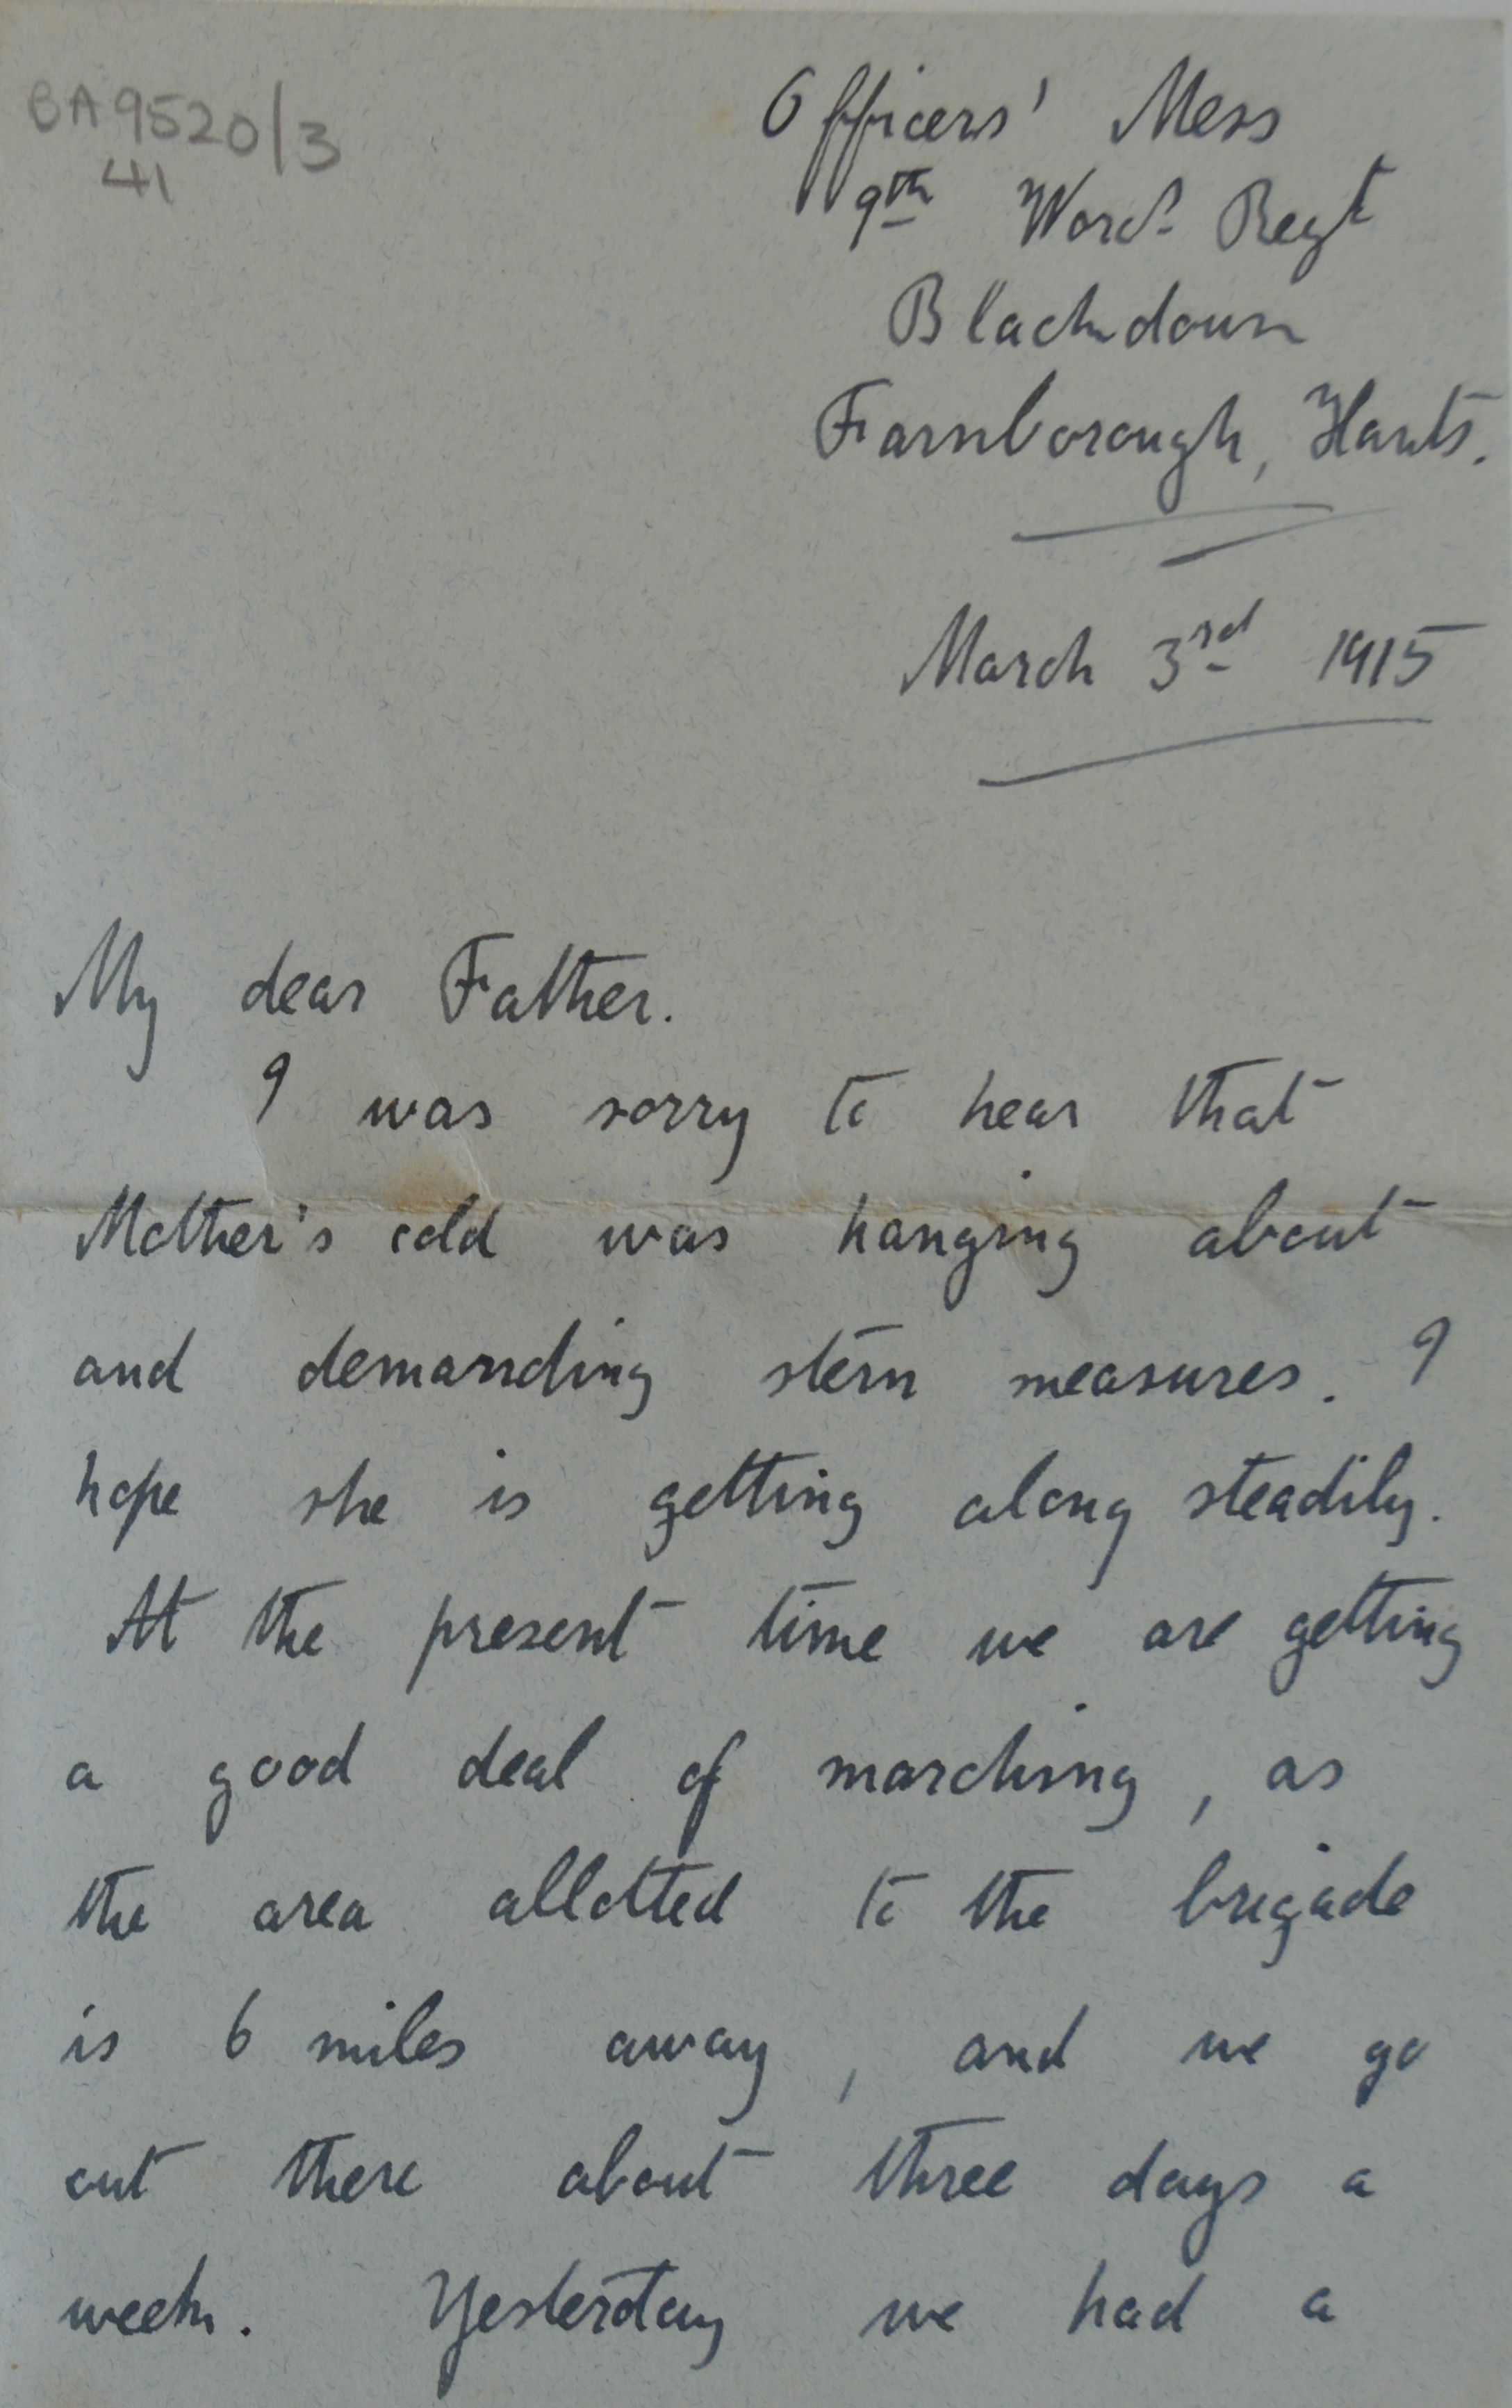 BA9520/3
41
Officers' Mess
9th Worc. Regt
Blackdown
Farnborough, Hants.
March 3rd 1915
My dear Father.
I was sorry to hear that
Mother's cold was hanging about
and demanding stern measures. I
hope she is getting along steadily.
At the present time we are getting
a good deal of marching, as
the area allotted to the brigade
is 6 miles away, and we go
out there about three days a
week. Yesterday we had a